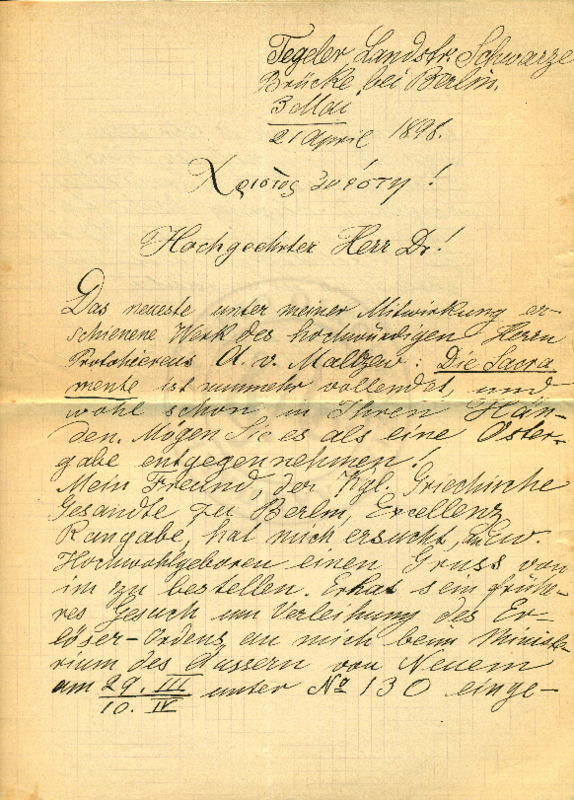 Tegeler Landstr. Schwarze
Brücke bei Berlin.
3 Mai
21 April 1898.
Χριστὸς ἀνέστη!
Hochgeehrter Herr Dr!
Das neueste unter meiner Mitwirkung er-
schienene Werk des hochwürdigen Herrn
Protohiereus A. v. Maltzew: Die Sacra
mente ist nunmehr vollendet, und
wohl schon in Ihren Hän-
den. Mögen Sie es als eine Oster-
gabe entgegennehmen!
Mein Freund, der Kgl. Griechische
Gesandte zu Berlin, Excellenz
Rangabe, hat mich ersucht, an Ew.
Hochwohlgeboren einen Gruss von
im zu bestellen. Er hat sein früh-
res Gesuch um Verleihung des Er-
löser-Ordens an mich beim Ministe-
rium des Äussern von Neuem
am 29. III
10. IV unter No 130 einge-